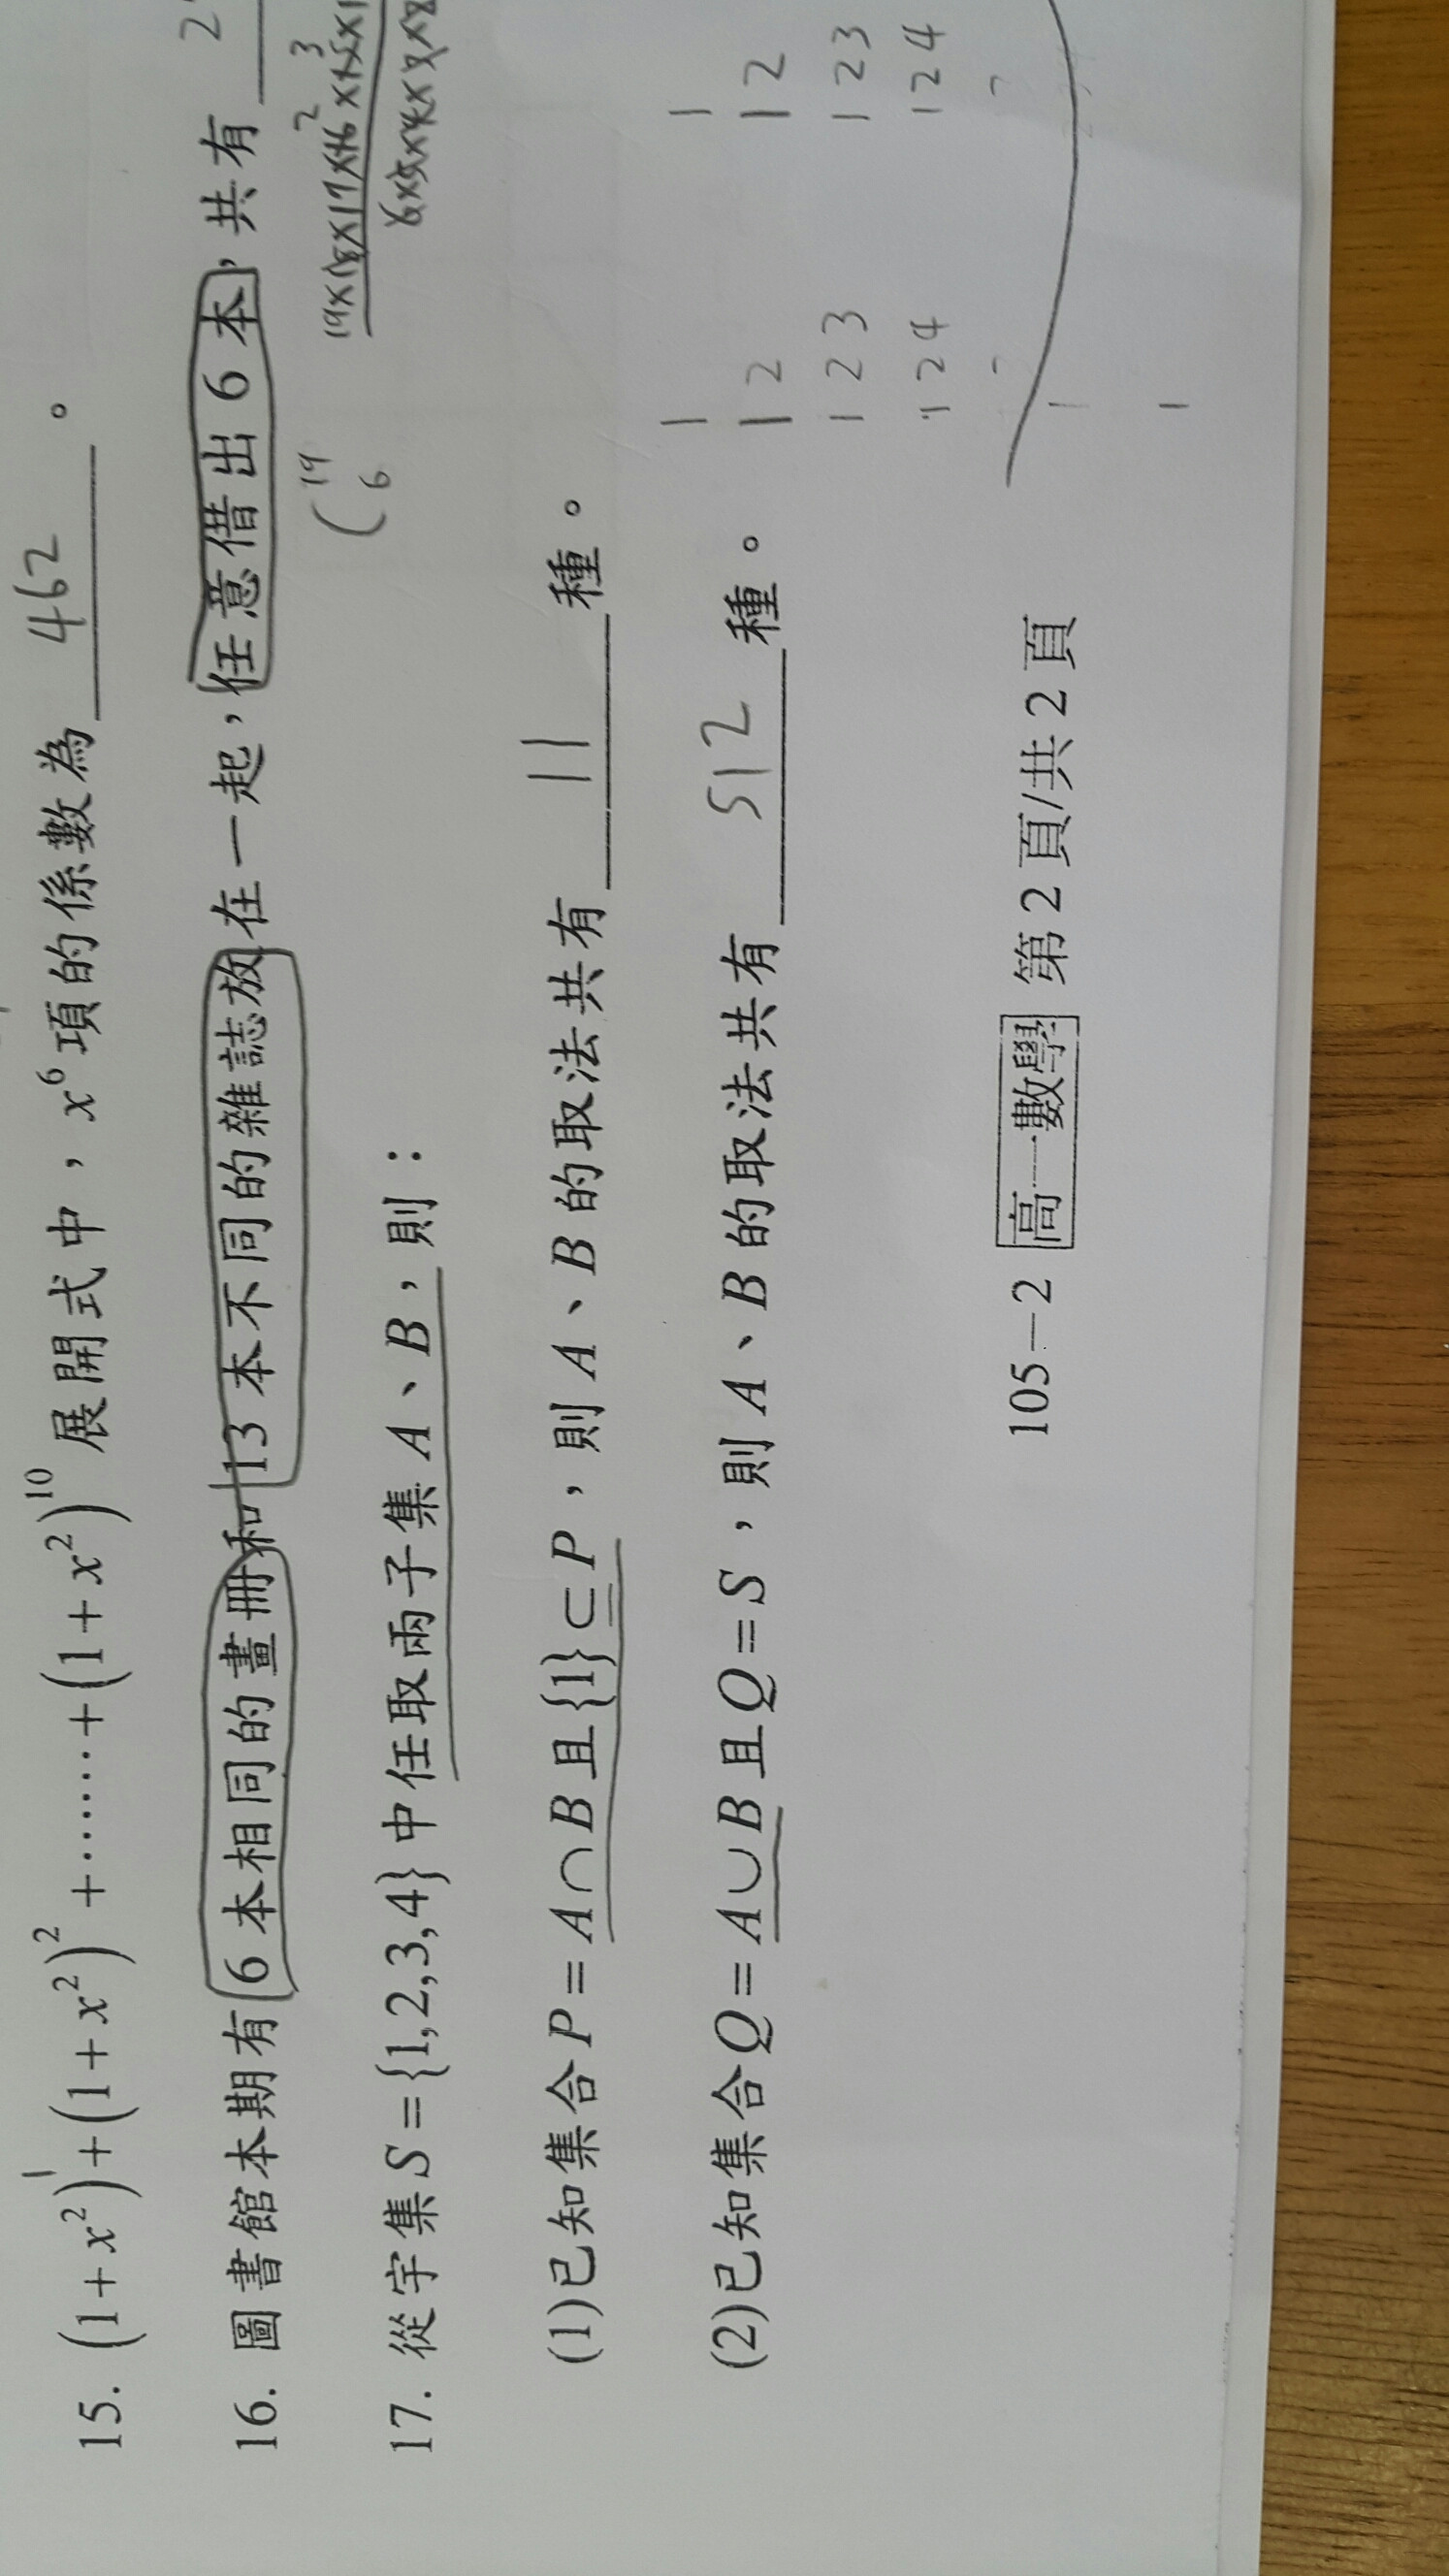 15. (1+x²)¹+(1+x²)²+⋯⋯+(1+x²)¹⁰ 展開式中，x⁶項的係數為 462 。
16. 圖書館本期有 6 本相同的畫冊和 13 本不同的雜誌放在一起，任意借出 6 本，共有 2
(19 6
19×18×17×16×15×1
2 3
6×5×4×3×2
17. 從宇集 S={1,2,3,4} 中任取兩子集 A、B，則：
(1)已知集合 P=A∩B 且{1}⊂P，則 A、B 的取法共有 11 種。
(2)已知集合 Q=A∪B 且 Q=S，則 A、B 的取法共有 512 種。
1 1
1 2 1 2
1 2 3 1 2 3
1 2 4 1 2 4
1
1
105－2 高一數學 第 2 頁/共 2 頁